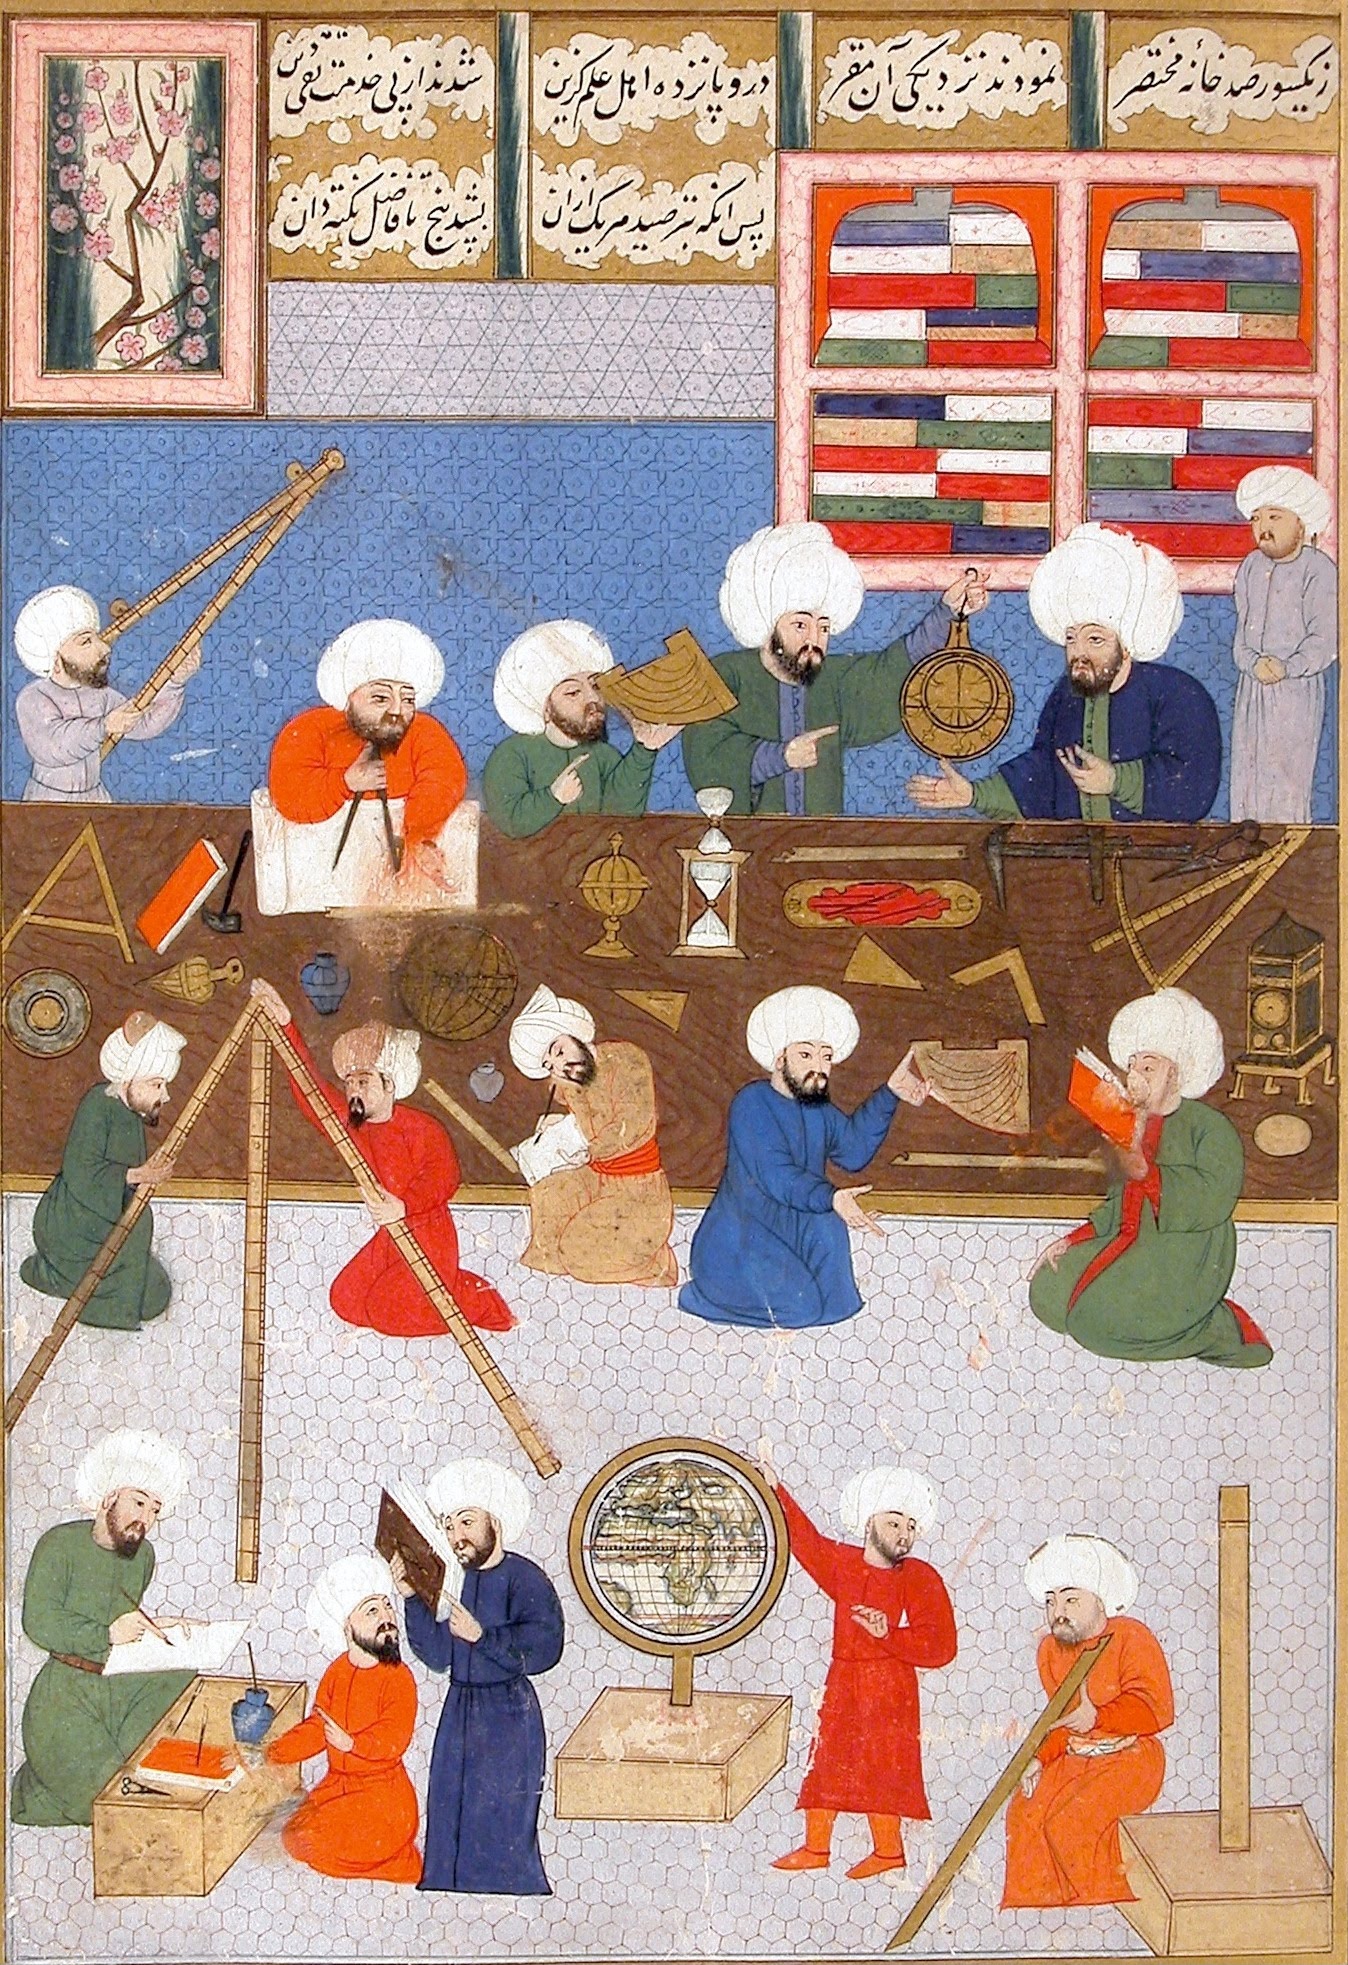 ز یکسو رصد خانهٔ مختصر
نمودند نزدیکی آن مقر
درو پانزده اهل علم گزین
شدند از پی خدمت تقی دین
پس انکه بنزصد هر یک ازان
بشد پنج تا فاضل نکته دان